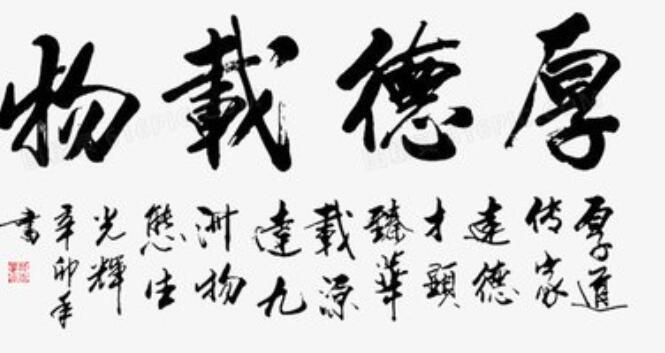 厚德載物
厚道
传家
遠德
才頭
臻華
載源
達九
洲物
態生
光輝
辛卯年
書